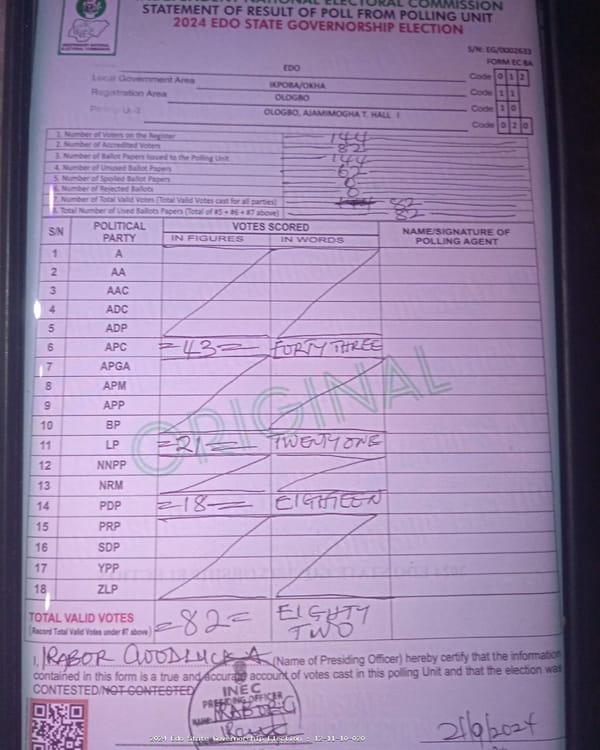 INDEPENDENT NATIONAL ELECTORAL COMMISSION
STATEMENT OF RESULT OF POLL FROM POLLING UNIT
2024 EDO STATE GOVERNORSHIP ELECTION
INEC
S/N: EG/0002633
FORM EC 8A
EDO
Code 0 1 2
Local Government Area IKPOBA/OKHA
Code 1 1
Registration Area OLOGBO
Code 1 0
Polling Unit OLOGBO, AJAMIMOGHA T. HALL I
Code 0 2 0
1. Number of Voters on the Register 144
2. Number of Accredited Voters 82
3. Number of Ballot Papers Issued to the Polling Unit 144
4. Number of Unused Ballot Papers 62
5. Number of Spoiled Ballot Papers 0
6. Number of Rejected Ballots 0
7. Number of Total Valid Votes (Total Valid Votes cast for all parties) 82
8. Total Number of Used Ballots Papers (Total of #5 + #6 + #7 above) 82
S/N POLITICAL PARTY VOTES SCORED NAME/SIGNATURE OF POLLING AGENT
IN FIGURES IN WORDS
1 A
2 AA
3 AAC
4 ADC
5 ADP
6 APC =43= FORTY THREE
7 APGA
8 APM
9 APP
10 BP
11 LP =21= TWENTY ONE
12 NNPP
13 NRM
14 PDP =18= EIGHTEEN
15 PRP
16 SDP
17 YPP
18 ZLP
ORIGINAL
TOTAL VALID VOTES =82= EIGHTY TWO
(Record Total Valid Votes under #7 above)
I, IRABOR GOODLUCK A (Name of Presiding Officer) hereby certify that the information
contained in this form is a true and accurate account of votes cast in this polling Unit and that the election was
CONTESTED/NOT CONTESTED
INEC
PRESIDING OFFICER
IRABOR G
21/9/2024
2024 Edo State Governorship Election - 12-11-10-020